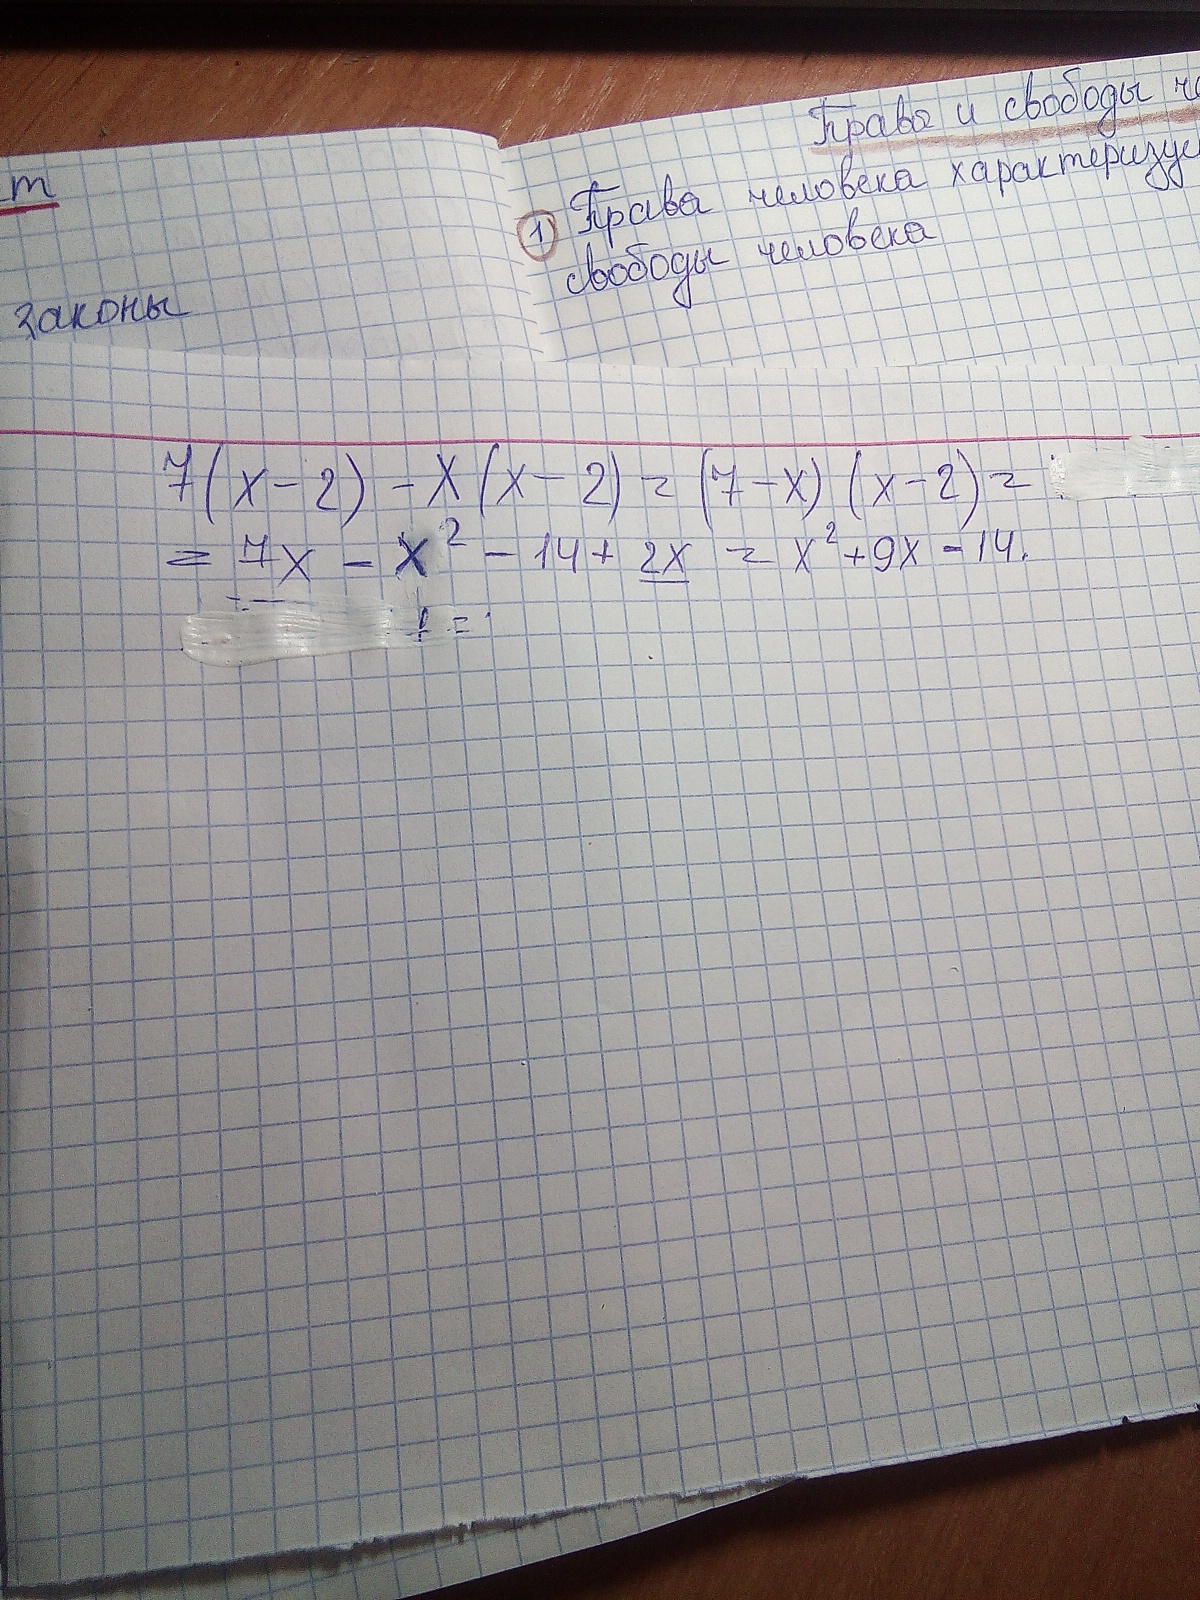 т
законы
Права и свободы че
1 Права человека характеризую
свободы человека
7(x-2) - x(x-2) = (7-x)(x-2) =
= 7x - x² - 14 + 2x = x² + 9x - 14.
+ =